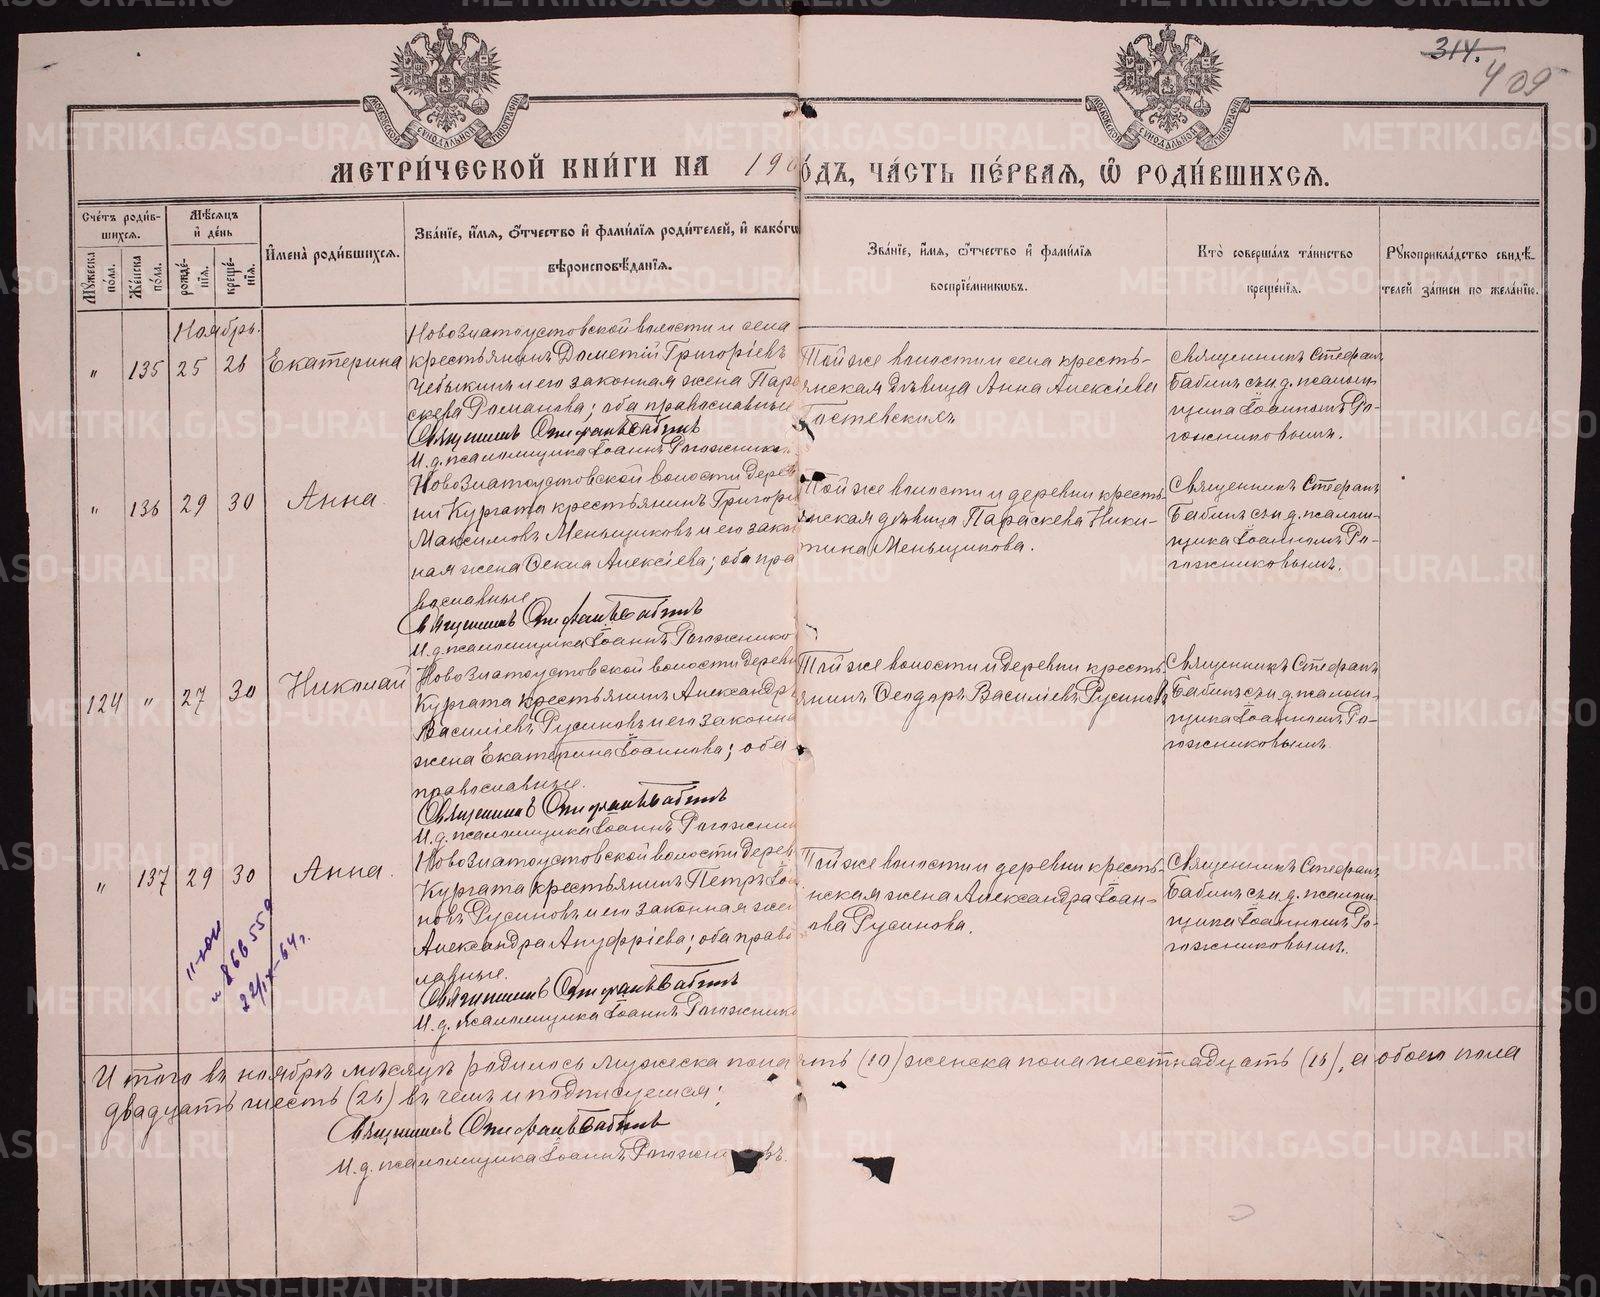 314.
409
МЕТРИ́ЧЕСКОЙ КНИ́ГИ НА 190
О́ДЪ, ЧА́СТЬ ПЕ́РВАѦ, Ѽ РОДИ́ВШИХСѦ.
Сче́тъ роди́в-
шихсѧ.
Мꙋ́жеска по́ла.
Же́нска по́ла.
Мѣ́сѧцъ
и҆ де́нь
рожде́-
нїѧ.
креще́-
нїѧ.
И҆мена̀ роди́вшихсѧ.
Зва́нїе, и҆́мѧ, ѻ҆́тчество и҆ фами́лїѧ роди́телей, и҆ како́гѡ
вѣроисповѣ́данїѧ.
Зва́нїе, и҆́мѧ, ѻ҆́тчество и҆ фами́лїѧ
воспрїе́мникѡвъ.
Кто̀ соверша́лъ та́инство
креще́нїѧ.
Рꙋкоприкла́дство свидѣ́-
телей за́писи по жела́нїю.
Ноябрь.
" 135 25 26 Екатерина
НовоЗлатоустовской волости и села
крестьянинъ Дометій Григоріевъ
Чебыкинъ и его законная жена Пара
скева Доманова; оба православные
Священникъ Стефанъ Бабинъ
И. д. псаломщика Іоаннъ Рогожнико
Той же волости и села кресть-
янская дѣвица Анна Алексіева
Гостевскихъ
Священникъ Стефанъ
Бабинъ съ и. д. псалом-
щика Іоанномъ Ро-
гожниковымъ.
" 136 29 30 Анна
НовоЗлатоустовской волости дерев
ни Кургата крестьянинъ Григори
Максимовъ Меньщиковъ и его закон
ная жена Ѳекла Алексіева; оба пра
вославные
Священникъ Стефанъ Бабинъ
И. д. псаломщика Іоаннъ Рогожнико
Той же волости и деревни кресть-
янская дѣвица Параскева Ники-
тина Меньщикова.
Священникъ Стефанъ
Бабинъ съ и. д. псалом-
щика Іоанномъ Ро-
гожниковымъ.
124 " 27 30 Николай
НовоЗлатоустовской волости деревни
Кургата крестьянинъ Александръ
Василіевъ Русиновъ и его законна
жена Екатерина Іоаннова; оба
православные.
Священникъ Стефанъ Бабинъ
И. д. псаломщика Іоаннъ Рогожник
Той же волости и деревни кресть
янинъ Ѳеодоръ Василіевъ Русиновъ
Священникъ Стефанъ
Бабинъ съ и. д. псалом-
щика Іоанномъ Ро-
гожниковымъ.
" 137 29 30 Анна.
НовоЗлатоустовской волости дерев
Кургата крестьянинъ Петръ Іоан
новъ Русиновъ и его законная жен
Александра Ануфріева; оба право
славные.
Священникъ Стефанъ Бабинъ
И. д. псаломщика Іоаннъ Рогожник
Той же волости и деревни кресть-
нская жена Александра Іоан-
ова Русинова.
Священникъ Стефанъ
Бабинъ съ и. д. псалом-
щика Іоанномъ Ро-
гожниковымъ.
22/IX-64 г.
Итого въ ноябрѣ мѣсяцѣ родилось мужеска пола ять (10) женска пола шестнадцать (16), а обоего пола
двадцать шесть (26) въ чемъ и подписуемся:
Священникъ Стефанъ Бабинъ
И. д. псаломщика Іоаннъ Рогожниковъ.
METRIKI.GASO-URAL.RU